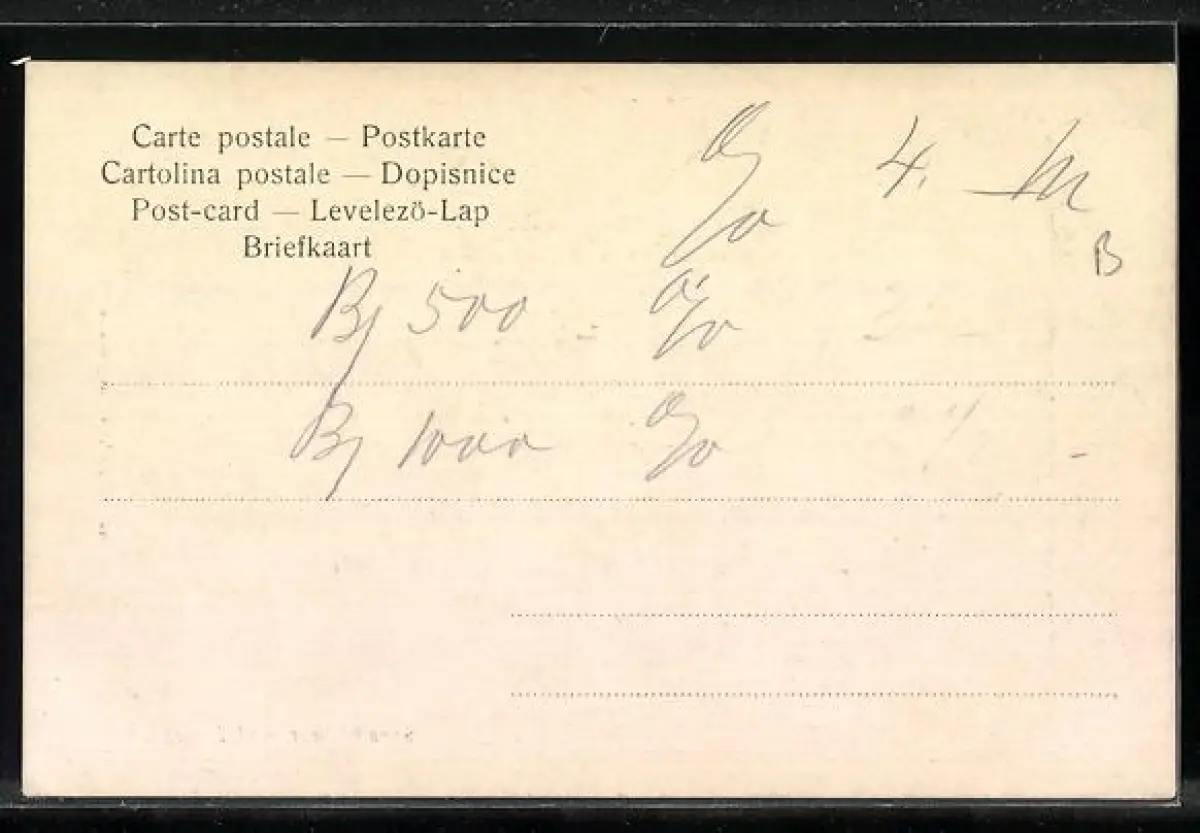 Carte postale — Postkarte
Cartolina postale — Dopisnice
Post-card — Levelezö-Lap
Briefkaart
% 4. M
B
Bj 500 - %
Bj 1000 %